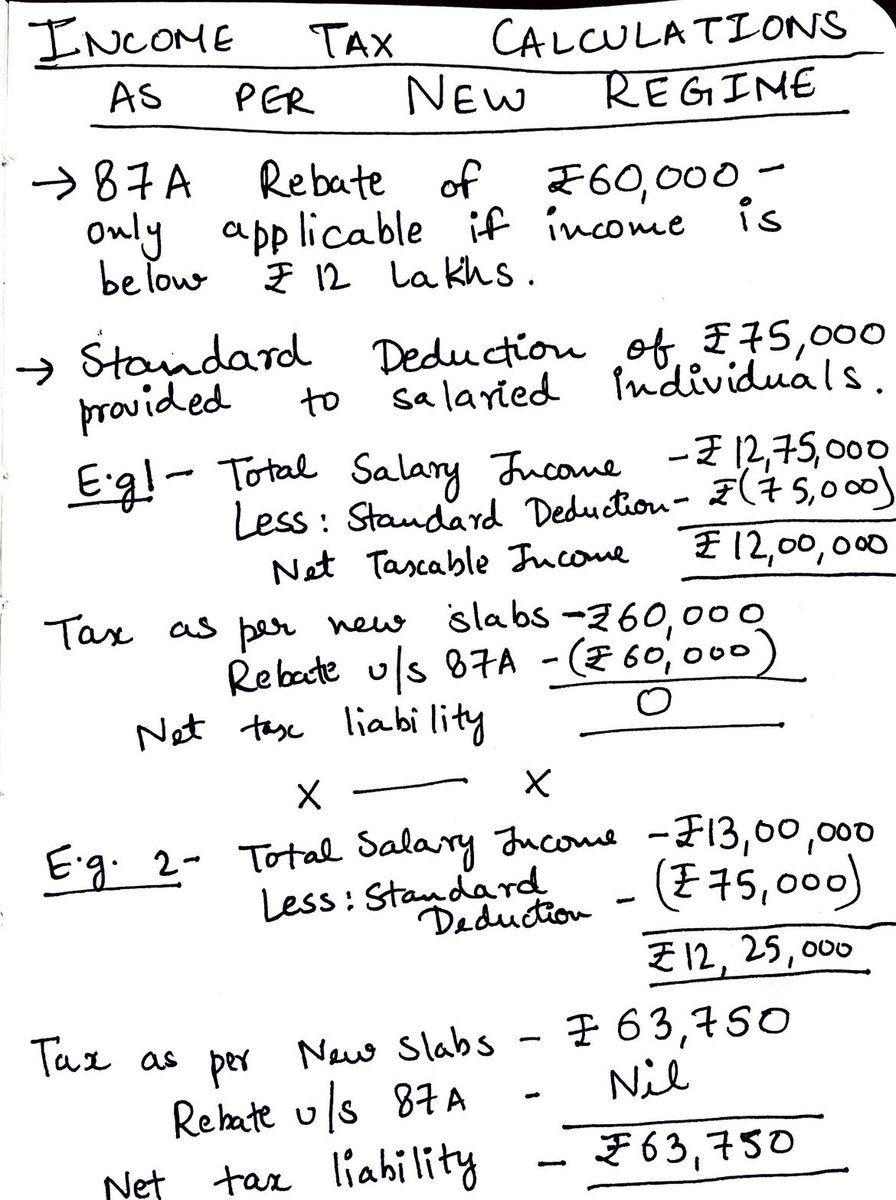 INCOME TAX CALCULATIONS
AS PER NEW REGIME
→ 87A Rebate of ₹60,000 -
only applicable if income is
below ₹ 12 Lakhs.
→ Standard Deduction of ₹75,000
provided to salaried individuals.
E.g1 - Total Salary Income - ₹12,75,000
Less: Standard Deduction - ₹(75,000)
Net Taxable Income ₹12,00,000
Tax as per new slabs - ₹60,000
Rebate u/s 87A - (₹60,000)
Net tax liability 0
X — X
E.g. 2 - Total Salary Income - ₹13,00,000
Less: Standard
Deduction - (₹75,000)
₹12,25,000
Tax as per New Slabs - ₹63,750
Rebate u/s 87A - Nil
Net tax liability - ₹63,750